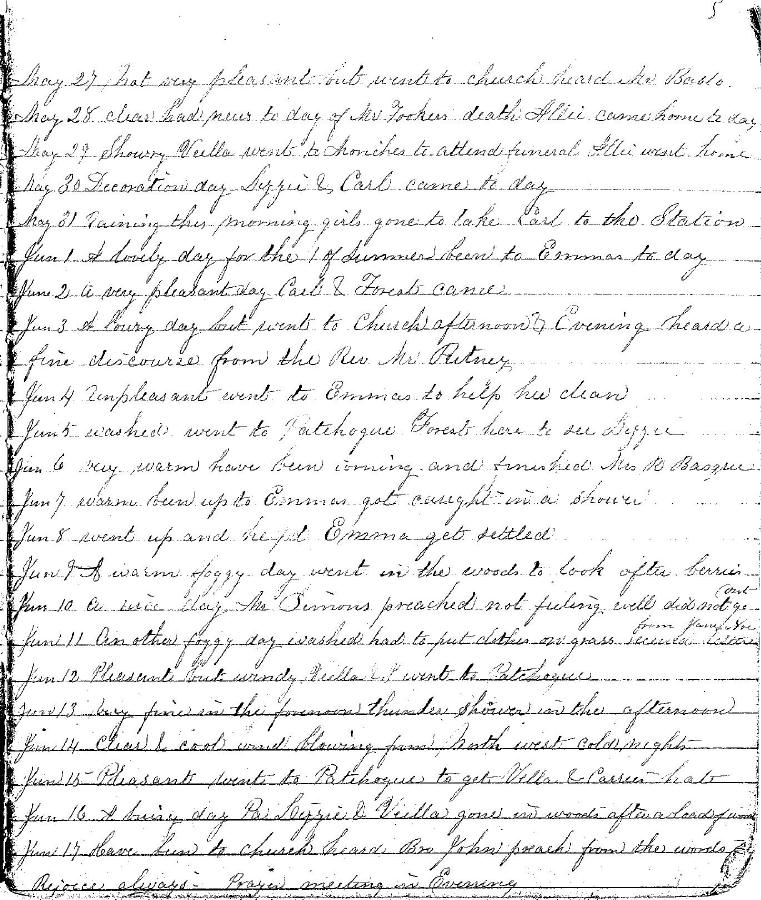 5
May 27 Not very pleasant but went to church heard Mr
May 28 clear had news to day of Mr death Allie came home to day
May 29 Showry Vella went to Moriches to attend funeral Allie went home
May 30 Decoration day Lizzie & Carl came to day
May 31 Raining this morning girls gone to take Carl to the Station
Jun 1 A lovely day for the 1 of Summer been to Emmas to day
June 2 A very pleasant day Carl & Forest came
Jun 3 A lowry day but went to Church afternoon & Evening heard a
fine discourse from the Rev Mr
Jun 4 Unpleasant went to Emmas to help her clean
Jun 5 washed went to Patchogue Forest here to see Lizzie
Jun 6 very warm have been ironing and finished Mrs R
Jun 7 warm been up to Emmas got caught in a shower
Jun 8 went up and help'd Emma get settled
Jun 9 A warm foggy day went in the woods to look after berries
Jun 10 a nice day Mr Simons preached not feeling well did not go out
Jun 11 Another foggy day washed had to put clothes on grass received letter from
Jun 12 Pleasant but windy Vella & I went to Patchogue
Jun 13 very fine in the forenoon thunder shower in the afternoon
Jun 14 Clear & cool wind blowing from North west cold nights
Jun 15 Pleasant went to Patchogue to get Vella & Carries hats
Jun 16 A busy day Pa Lizzie & Vella gone in woods after a load of wood
Jun 17 Have been to church heard Bro John preach from the words
Rejoice always - Prayer meeting in Evening